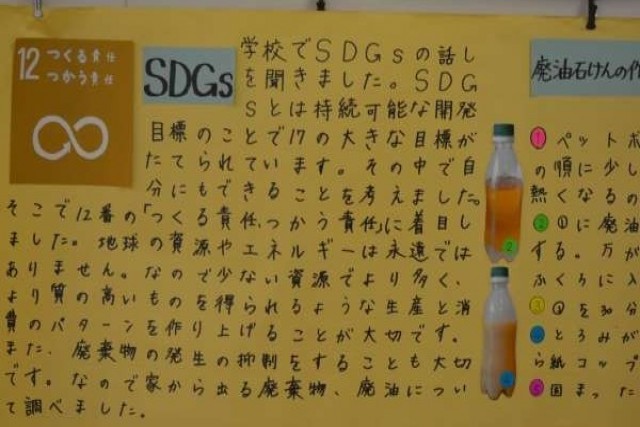 12 つくる責任
つかう責任
SDGs
学校でSDGsの話し
を聞きました。SDG
sとは持続可能な開発
目標のことで17の大きな目標が
たてられています。その中で自
分にもできることを考えました。
そこで12番の「つくる責任、つかう責任」に着目し
ました。地球の資源やエネルギーは永遠では
ありません。なので少ない資源でより多く、
より質の高いものを得られるような生産と消
費のパターンを作り上げることが大切です。
また、廃棄物の発生の抑制をすることも大切
です。なので家から出る廃棄物、廃油につい
て調べました。
廃油石けんの作
① ペットボ
の順に少し
熱くなるの
② ①に廃油
する。万が
ふくろに入
③ ①を30分
④ とろみが
ら紙コップ
⑤ 固まった
2